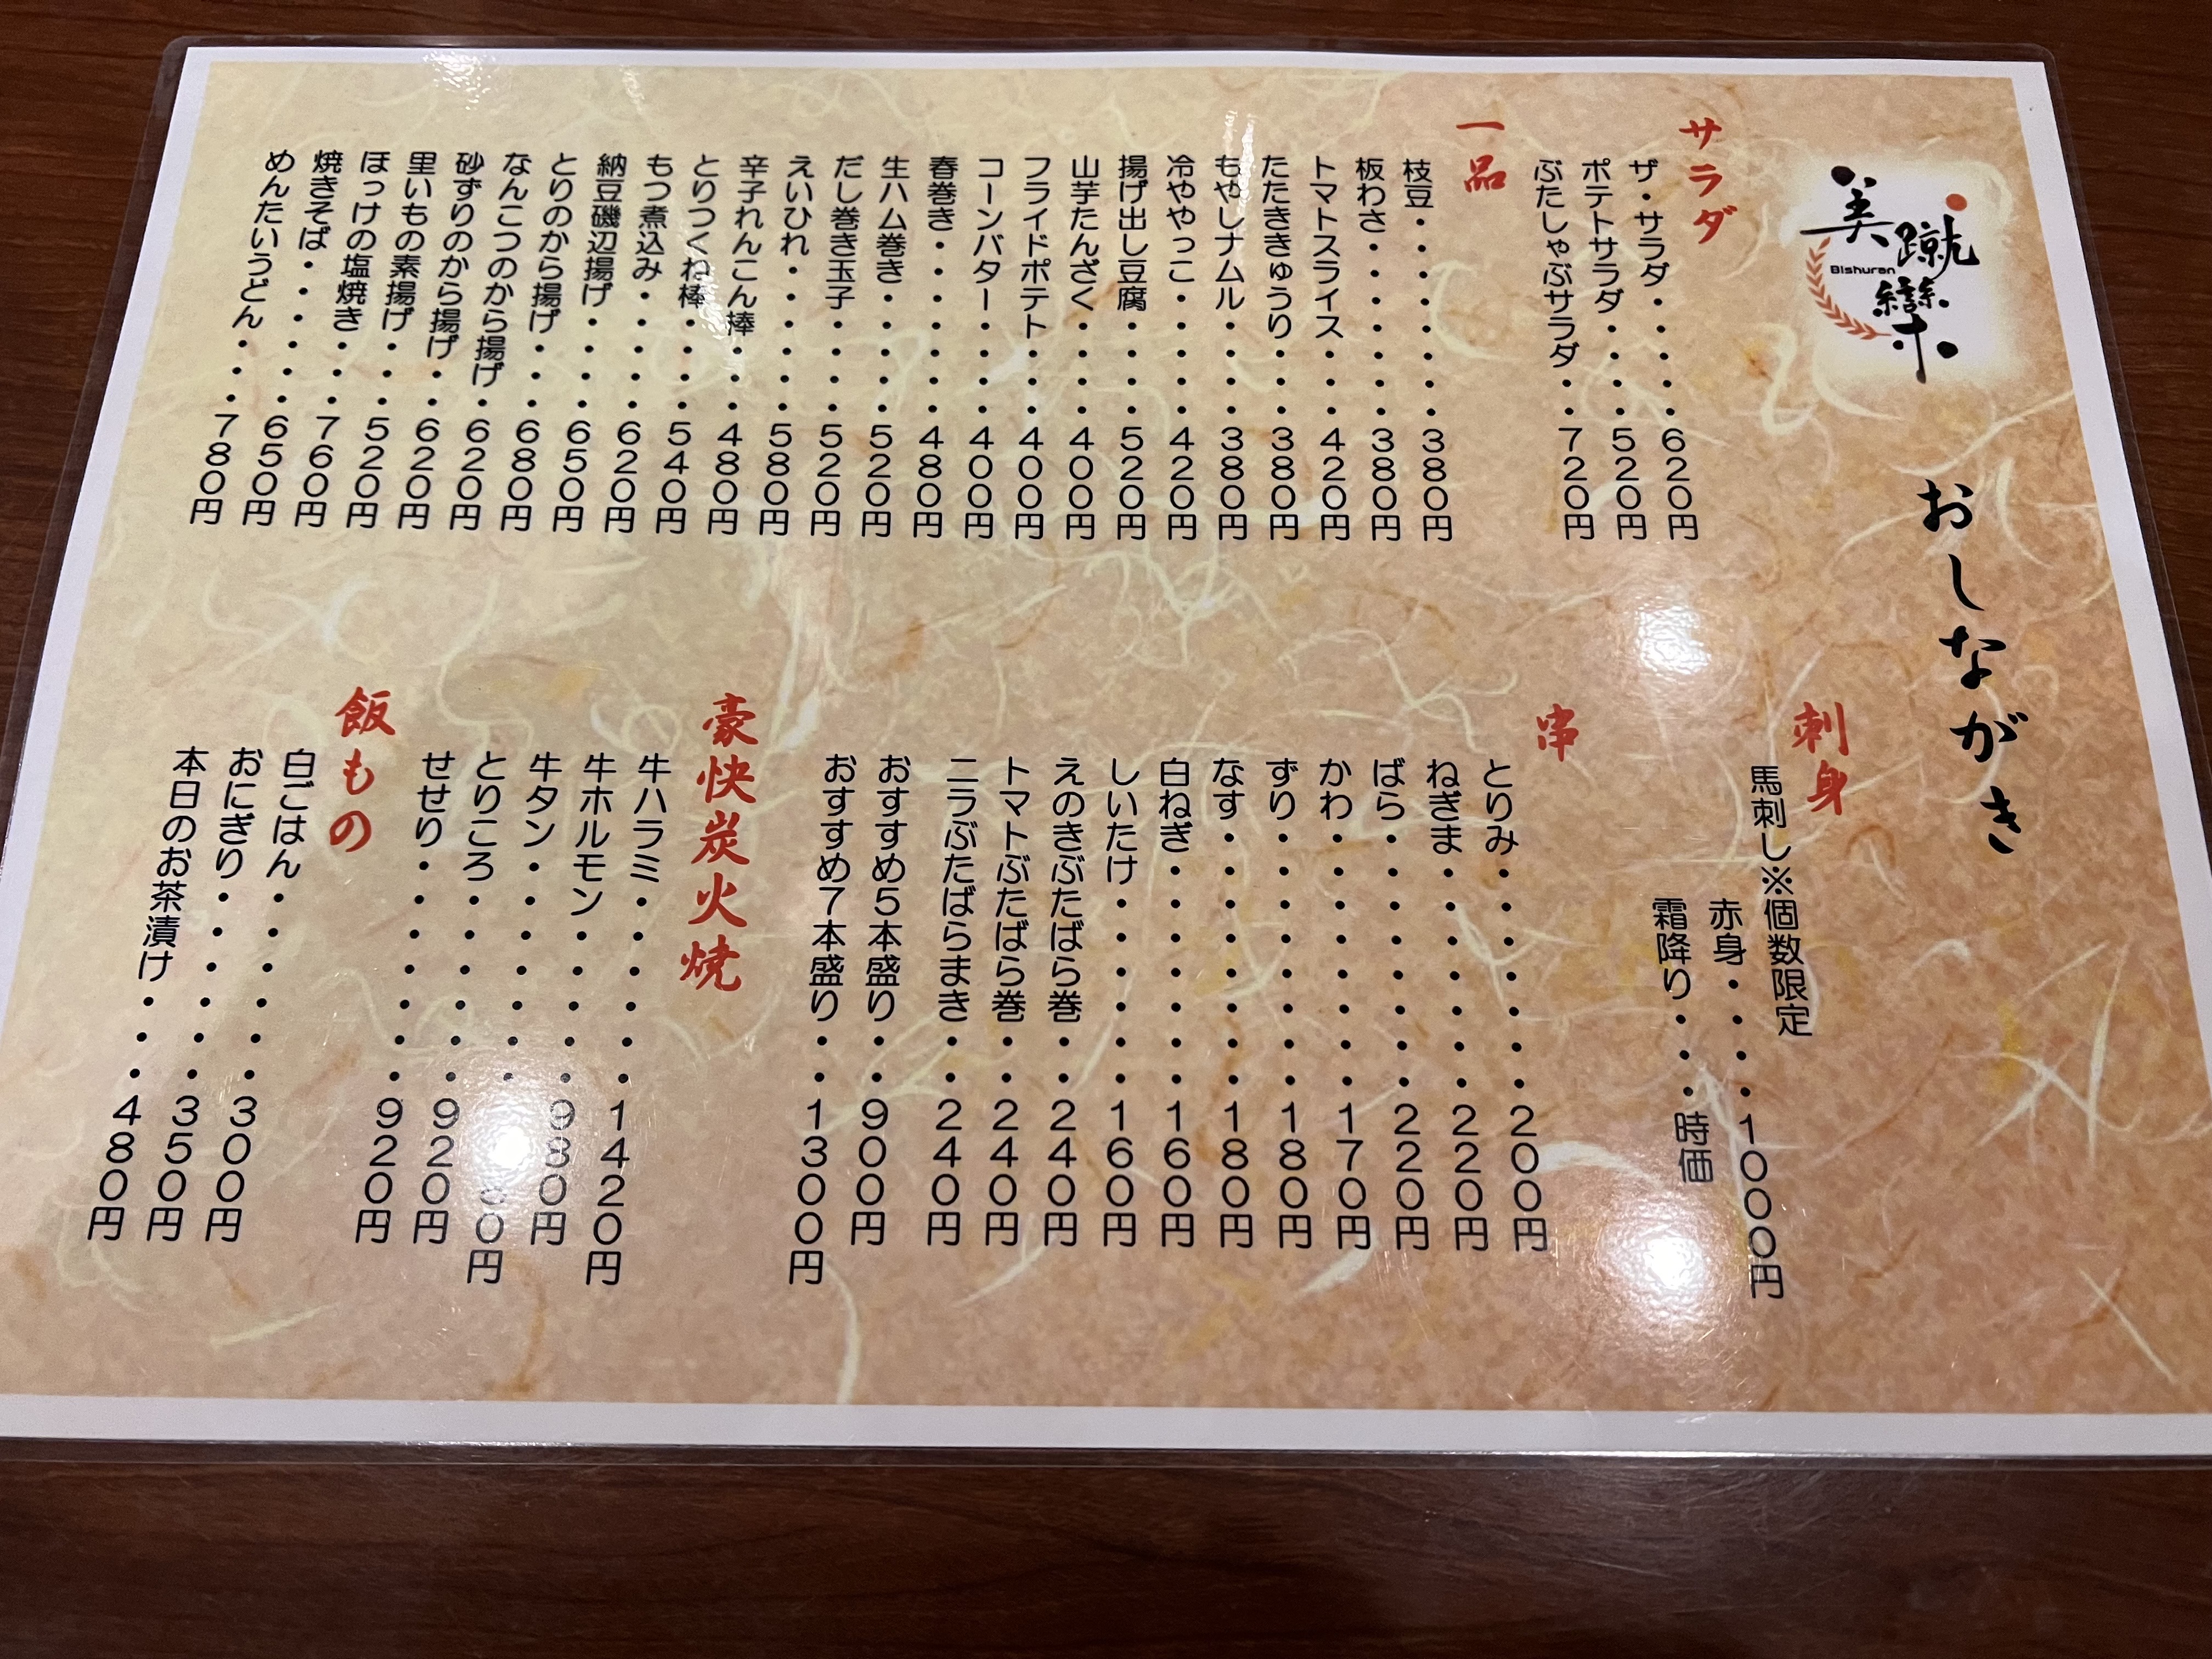 美蹴欒
Bishuran
おしながき
サラダ
ザ・サラダ・・・・・620円
ポテトサラダ・・・・520円
ぶたしゃぶサラダ・・720円
一品
枝豆・・・・・・・・380円
板わさ・・・・・・・380円
トマトスライス・・・420円
たたききゅうり・・・380円
もやしナムル・・・・380円
冷ややっこ・・・・・420円
揚げ出し豆腐・・・・520円
山芋たんざく・・・・400円
フライドポテト・・・400円
コーンバター・・・・400円
春巻き・・・・・・・480円
生ハム巻き・・・・・520円
だし巻き玉子・・・・520円
えいひれ・・・・・・580円
辛子れんこん棒・・・480円
とりつくね棒・・・・540円
もつ煮込み・・・・・620円
納豆磯辺揚げ・・・・650円
とりのから揚げ・・・680円
なんこつのから揚げ・620円
砂ずりのから揚げ・・620円
里いもの素揚げ・・・520円
ほっけの塩焼き・・・760円
焼きそば・・・・・・650円
めんたいうどん・・・780円
刺身
馬刺し※個数限定
赤身・・・・1000円
霜降り・・・時価
串
とりみ・・・・・・・200円
ねぎま・・・・・・・220円
ばら・・・・・・・・220円
かわ・・・・・・・・170円
ずり・・・・・・・・180円
なす・・・・・・・・180円
白ねぎ・・・・・・・160円
しいたけ・・・・・・160円
えのきぶたばら巻・・240円
トマトぶたばら巻・・240円
ニラぶたばらまき・・240円
おすすめ5本盛り・・900円
おすすめ7本盛り・・1300円
豪快炭火焼
牛ハラミ・・・・・・1420円
牛ホルモン・・・・・980円
牛タン・・・・・・・
とりころ・・・・・・920円
せせり・・・・・・・920円
飯もの
白ごはん・・・・・・300円
おにぎり・・・・・・350円
本日のお茶漬け・・・480円